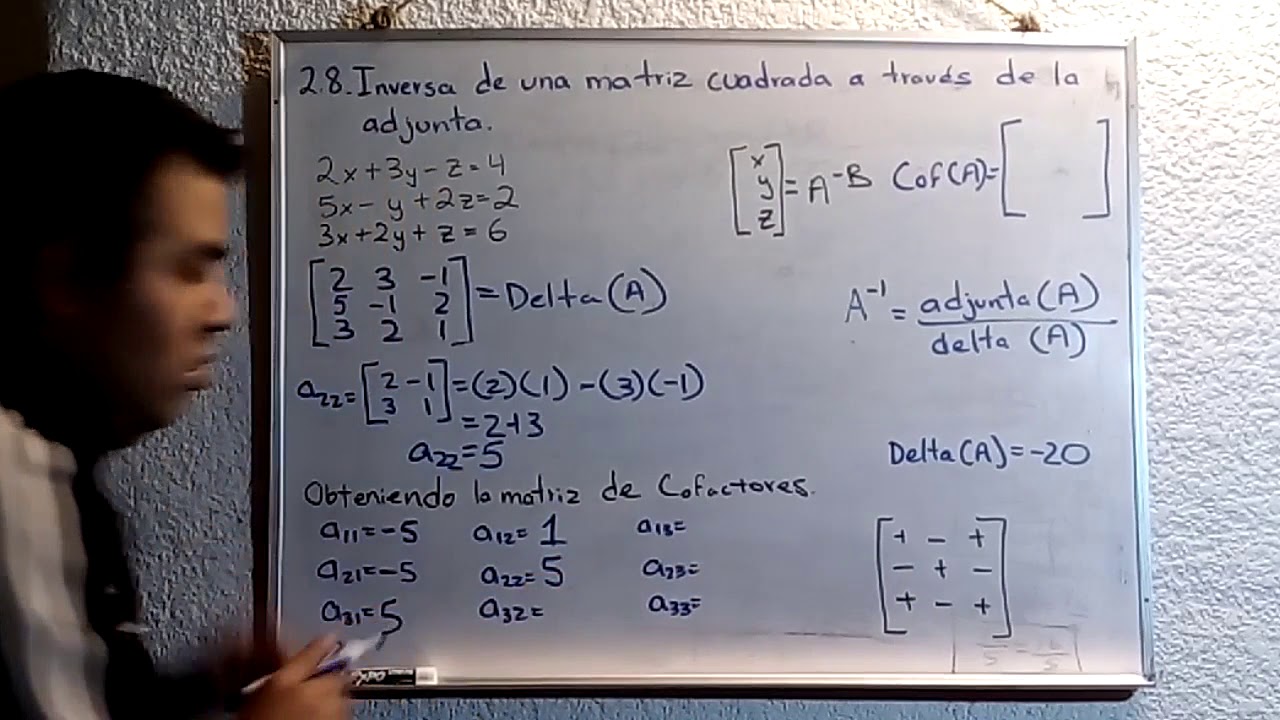 2.8. Inversa de una matriz cuadrada a través de la
adjunta.
2x+3y-z=4
5x-y+2z=2
3x+2y+z=6
[x y z] = A-B Cof(A)=[ ]
[2 3 -1
5 -1 2
3 2 1] = Delta(A)
A⁻¹ = adjunta(A)
delta (A)
a22=[2 -1
3 1]=(2)(1)-(3)(-1)
=2+3
a22=5
Delta(A)=-20
Obteniendo la matriz de Cofactores.
a11=-5 a12=1 a13=
a21=-5 a22=5 a23=
a31=5 a32= a33=
[+ - +
- + -
+ - +]
EXPO